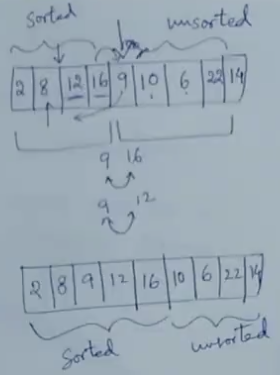 sorted unsorted
2 8 12 16 9 10 6 22 14
9 16
9 12
2 8 9 12 16 10 6 22 14
Sorted unsorted